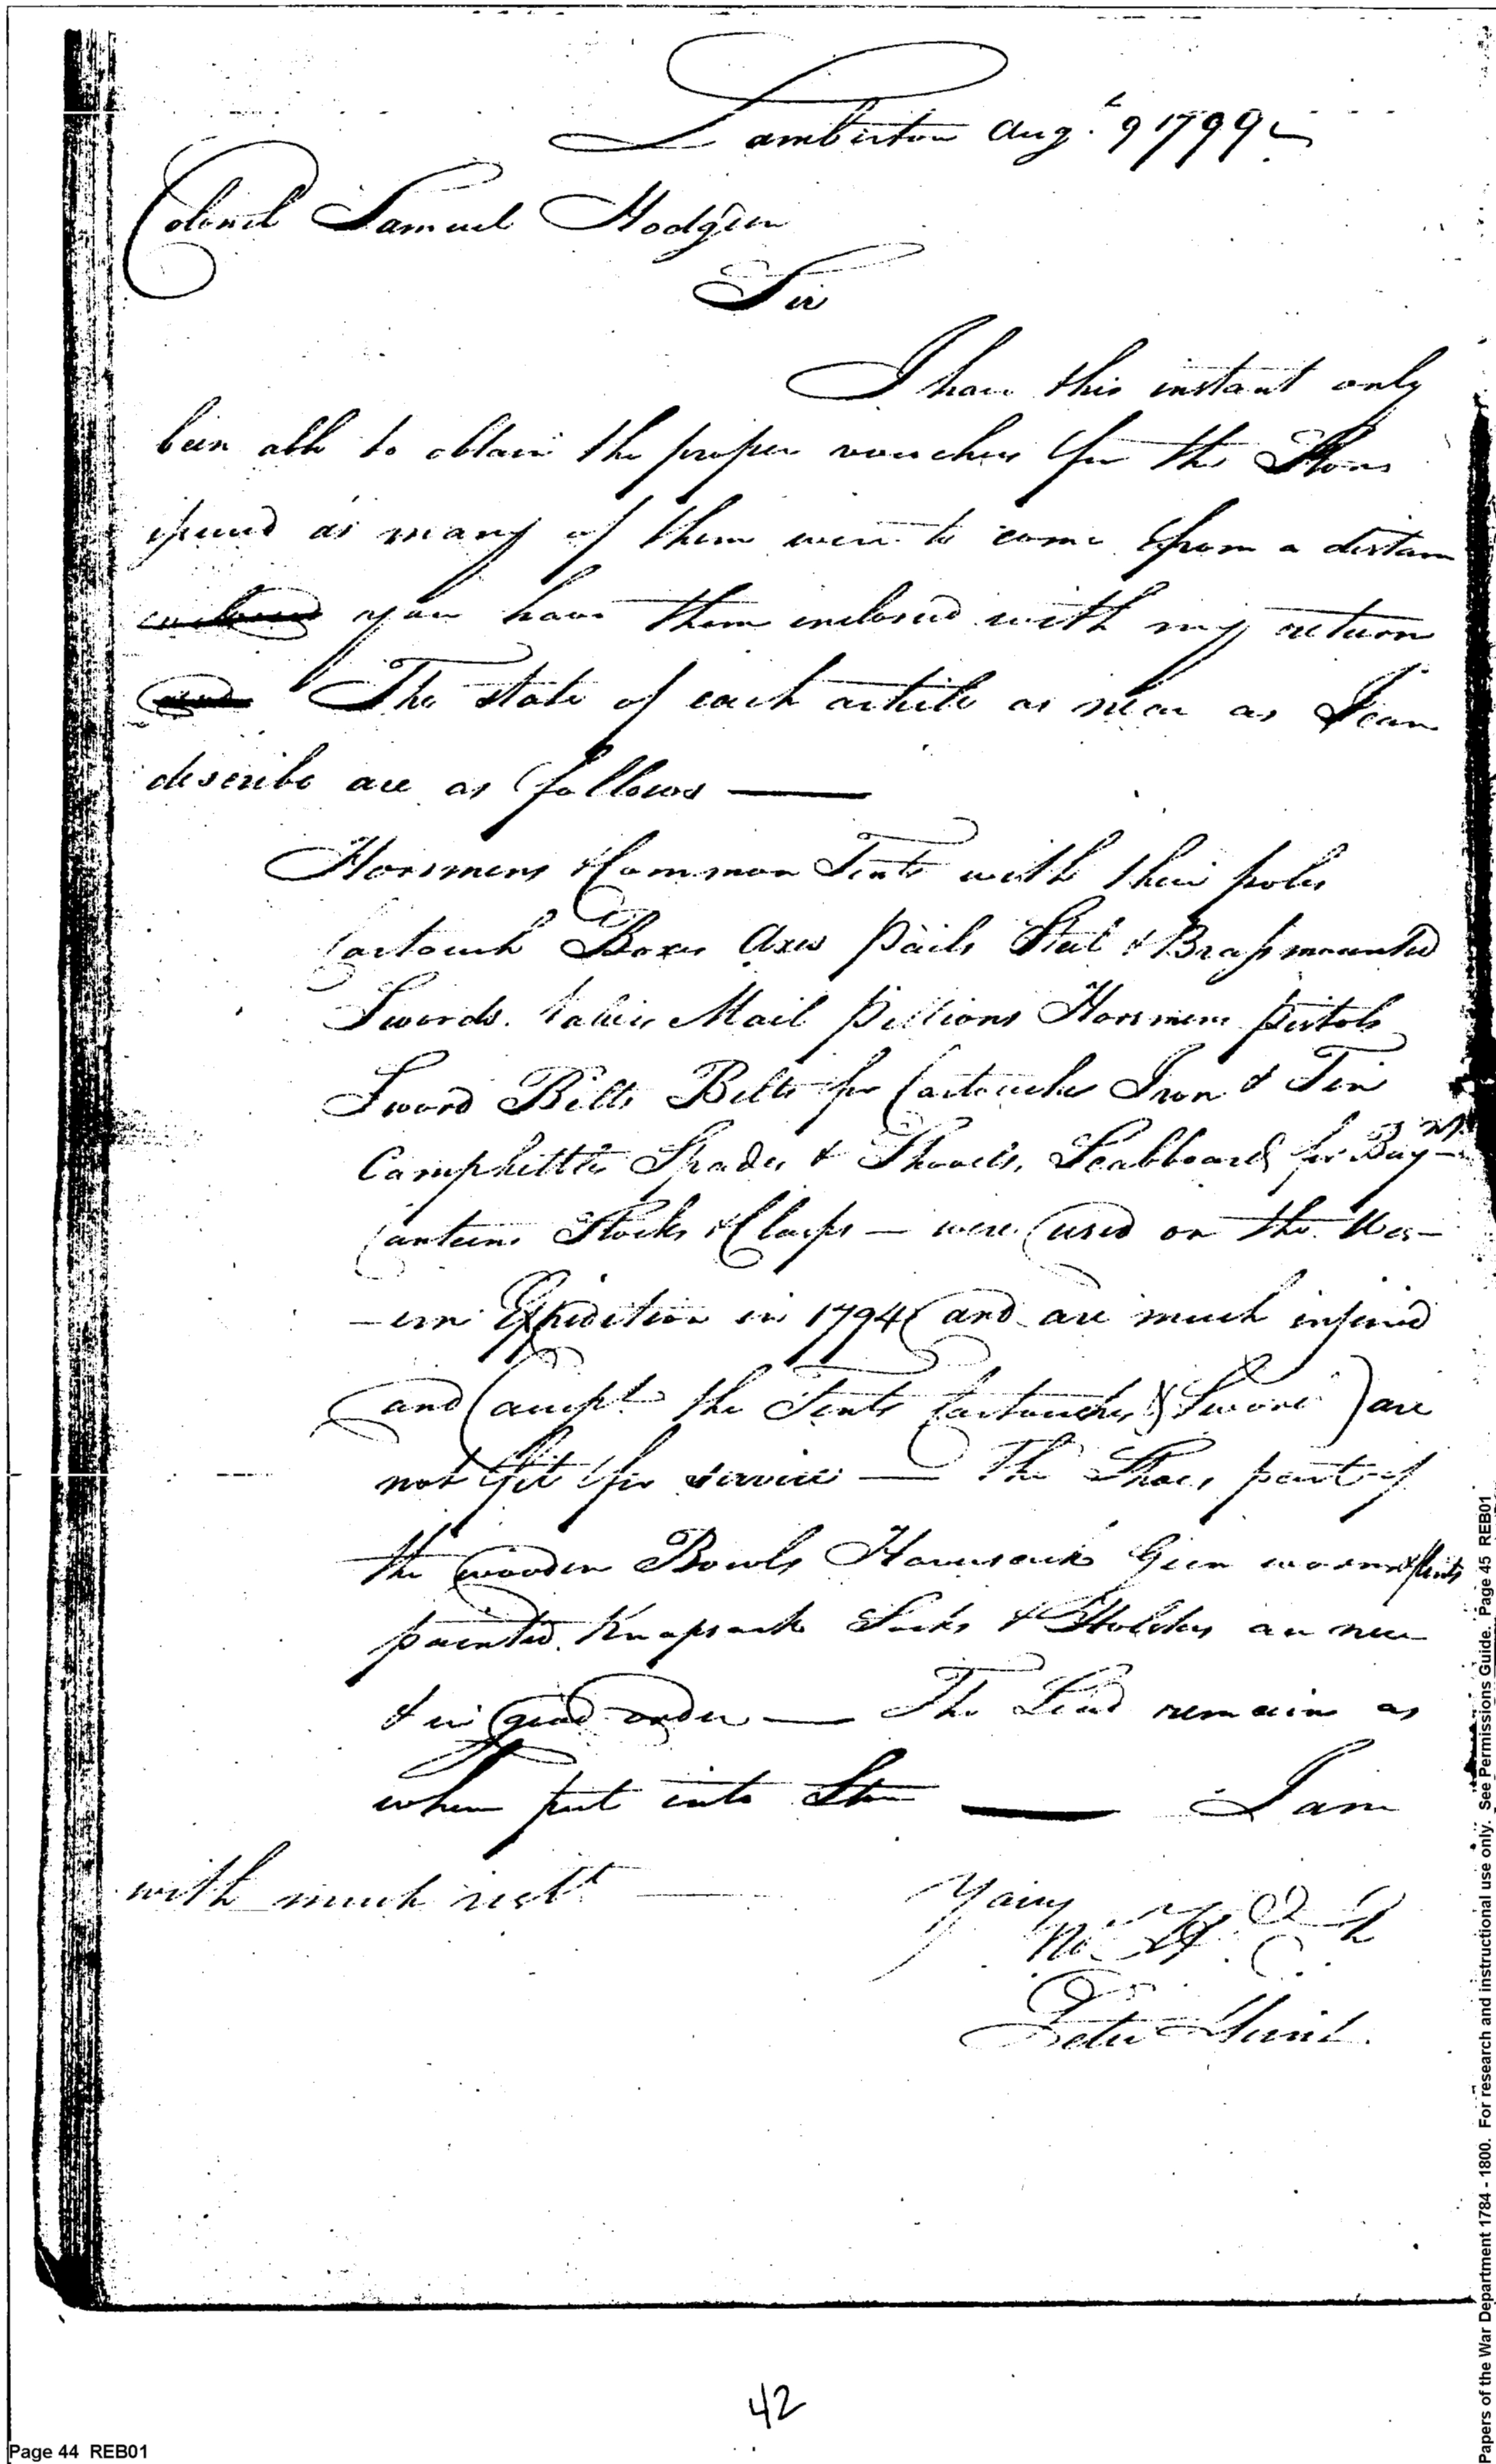 Lamberton Aug.t 9 1799
Colonel Samuel Hodgdon
Sir
I have this instant only
been able to obtain the proper vouchers for the Stores
issued as many of them were to come from a distance
you have them inclosed with my return
The state of each article as near as I can
describe are as follows —
Horsmens & Common Tents with their poles
Cartouch Boxes Axes Pails Steel & Brass mounted
Swords. Mail Pillions Horsmens pistols
Sword Belts Belts for Cartouches Iron & Tin
Campkettles Spades & Shovels, Scabboards for Bay
Canteens Stocks & Clasps — were used on the Wes-
-ern Expedition in 1794 and are much injured
and (except the Tents Cartouches & Swords) are
not fit for service — The Shoes, part of
the wooden Bowls Haversacks Gun worms & flints
painted Knapsacks Socks & Holsters are new
& in good order — The Lead remains as
when put into Store — I am
with much rest
Peter Hunt.
42
Page 44 REB01
Papers of the War Department 1784 - 1800. For research and instructional use only. See Permissions Guide. Page 45 REB01